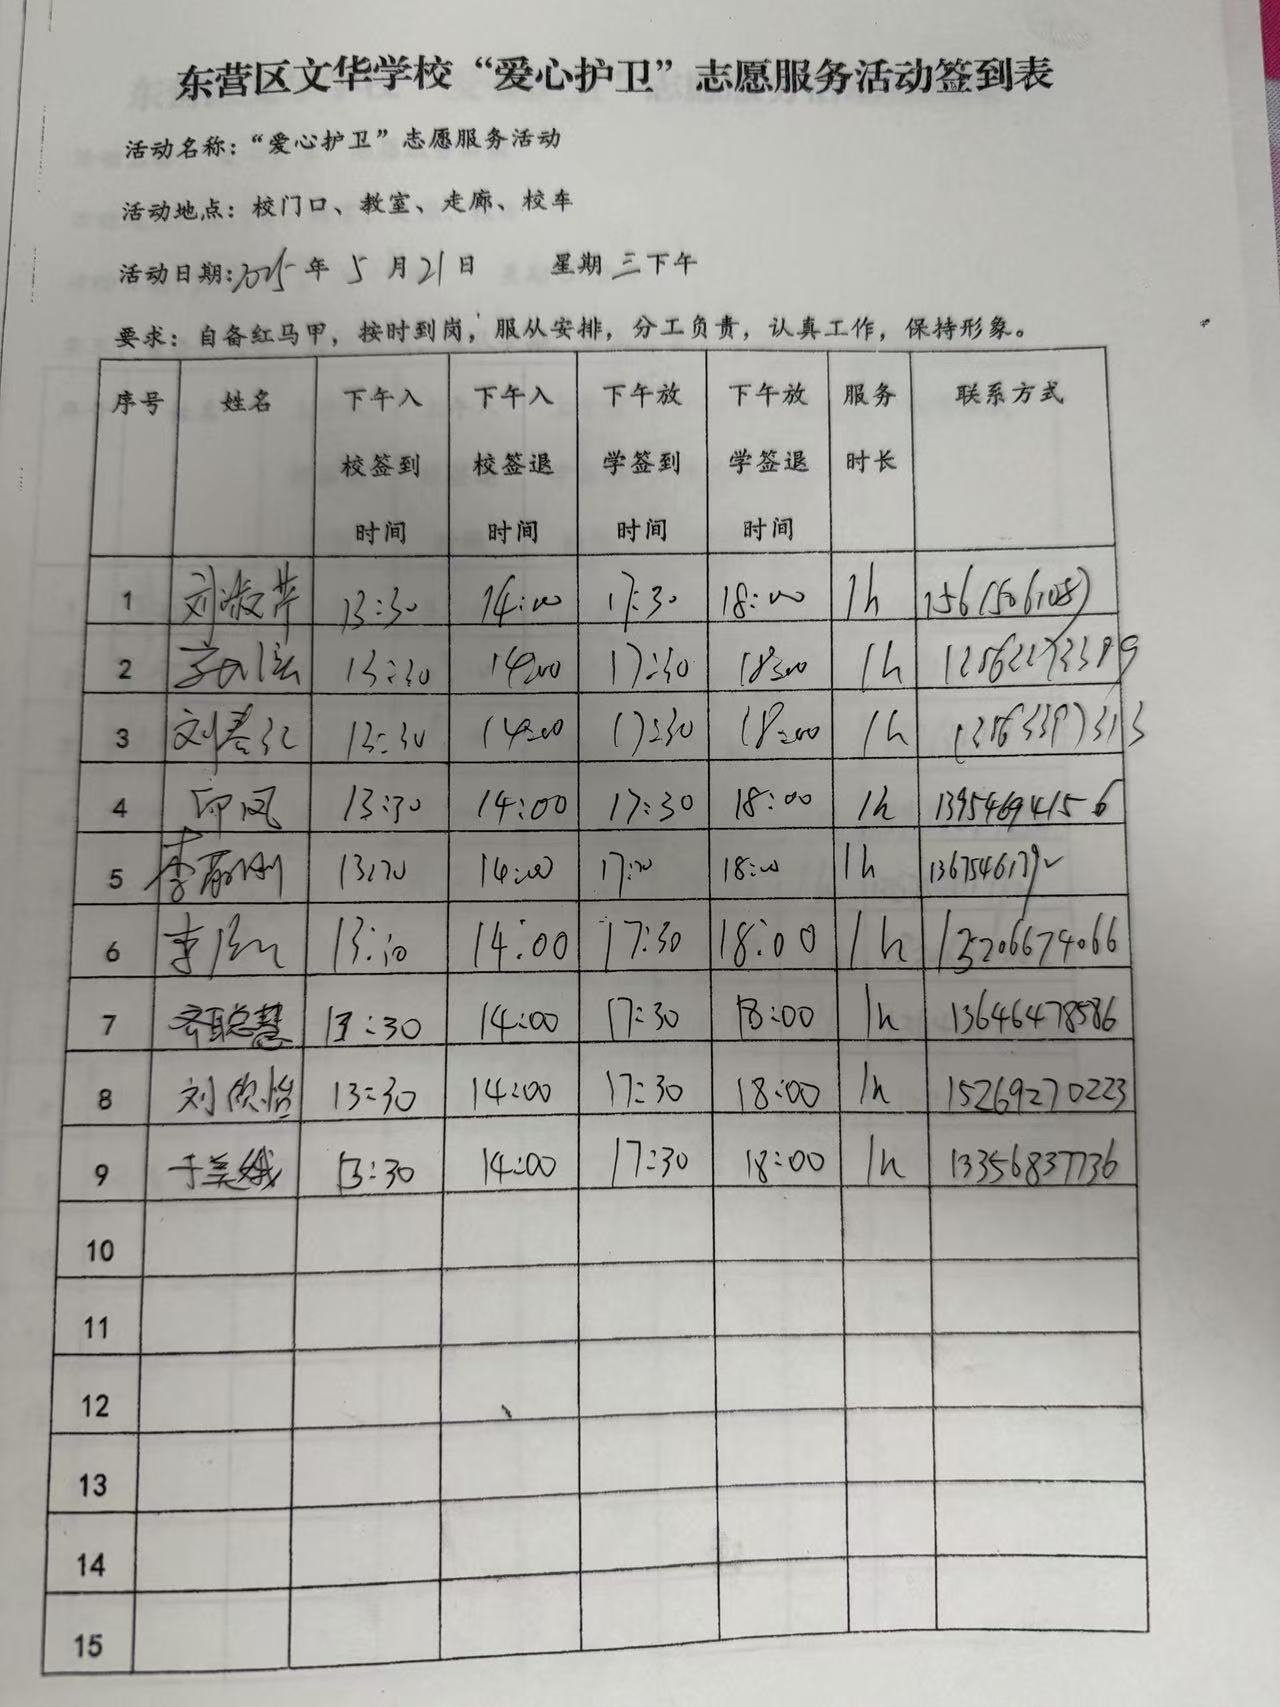 东营区文华学校“爱心护卫”志愿服务活动签到表
活动名称：“爱心护卫”志愿服务活动
活动地点：校门口、教室、走廊、校车
活动日期：2025年 5 月 21 日 星期 三 下午
要求：自备红马甲，按时到岗，服从安排，分工负责，认真工作，保持形象。
序号 姓名 下午入校签到时间 下午入校签退时间 下午放学签到时间 下午放学签退时间 服务时长 联系方式
1 刘淑芹 13:30 14:00 17:30 18:00 1h
2 13:30 14:00 17:30 18:00 1h
3 刘春红 13:30 14:00 17:30 18:00 1h
4 印凤 13:30 14:00 17:30 18:00 1h 13954694156
5 14:00 18:00 1h
6 14:00 17:30 18:00 1h 15206674066
7 齐聪慧 13:30 14:00 17:30 18:00 1h 13646478586
8 刘欣怡 13:30 14:00 17:30 18:00 1h 15269270223
9 于美娥 13:30 14:00 17:30 18:00 1h 13356837736
10
11
12
13
14
15